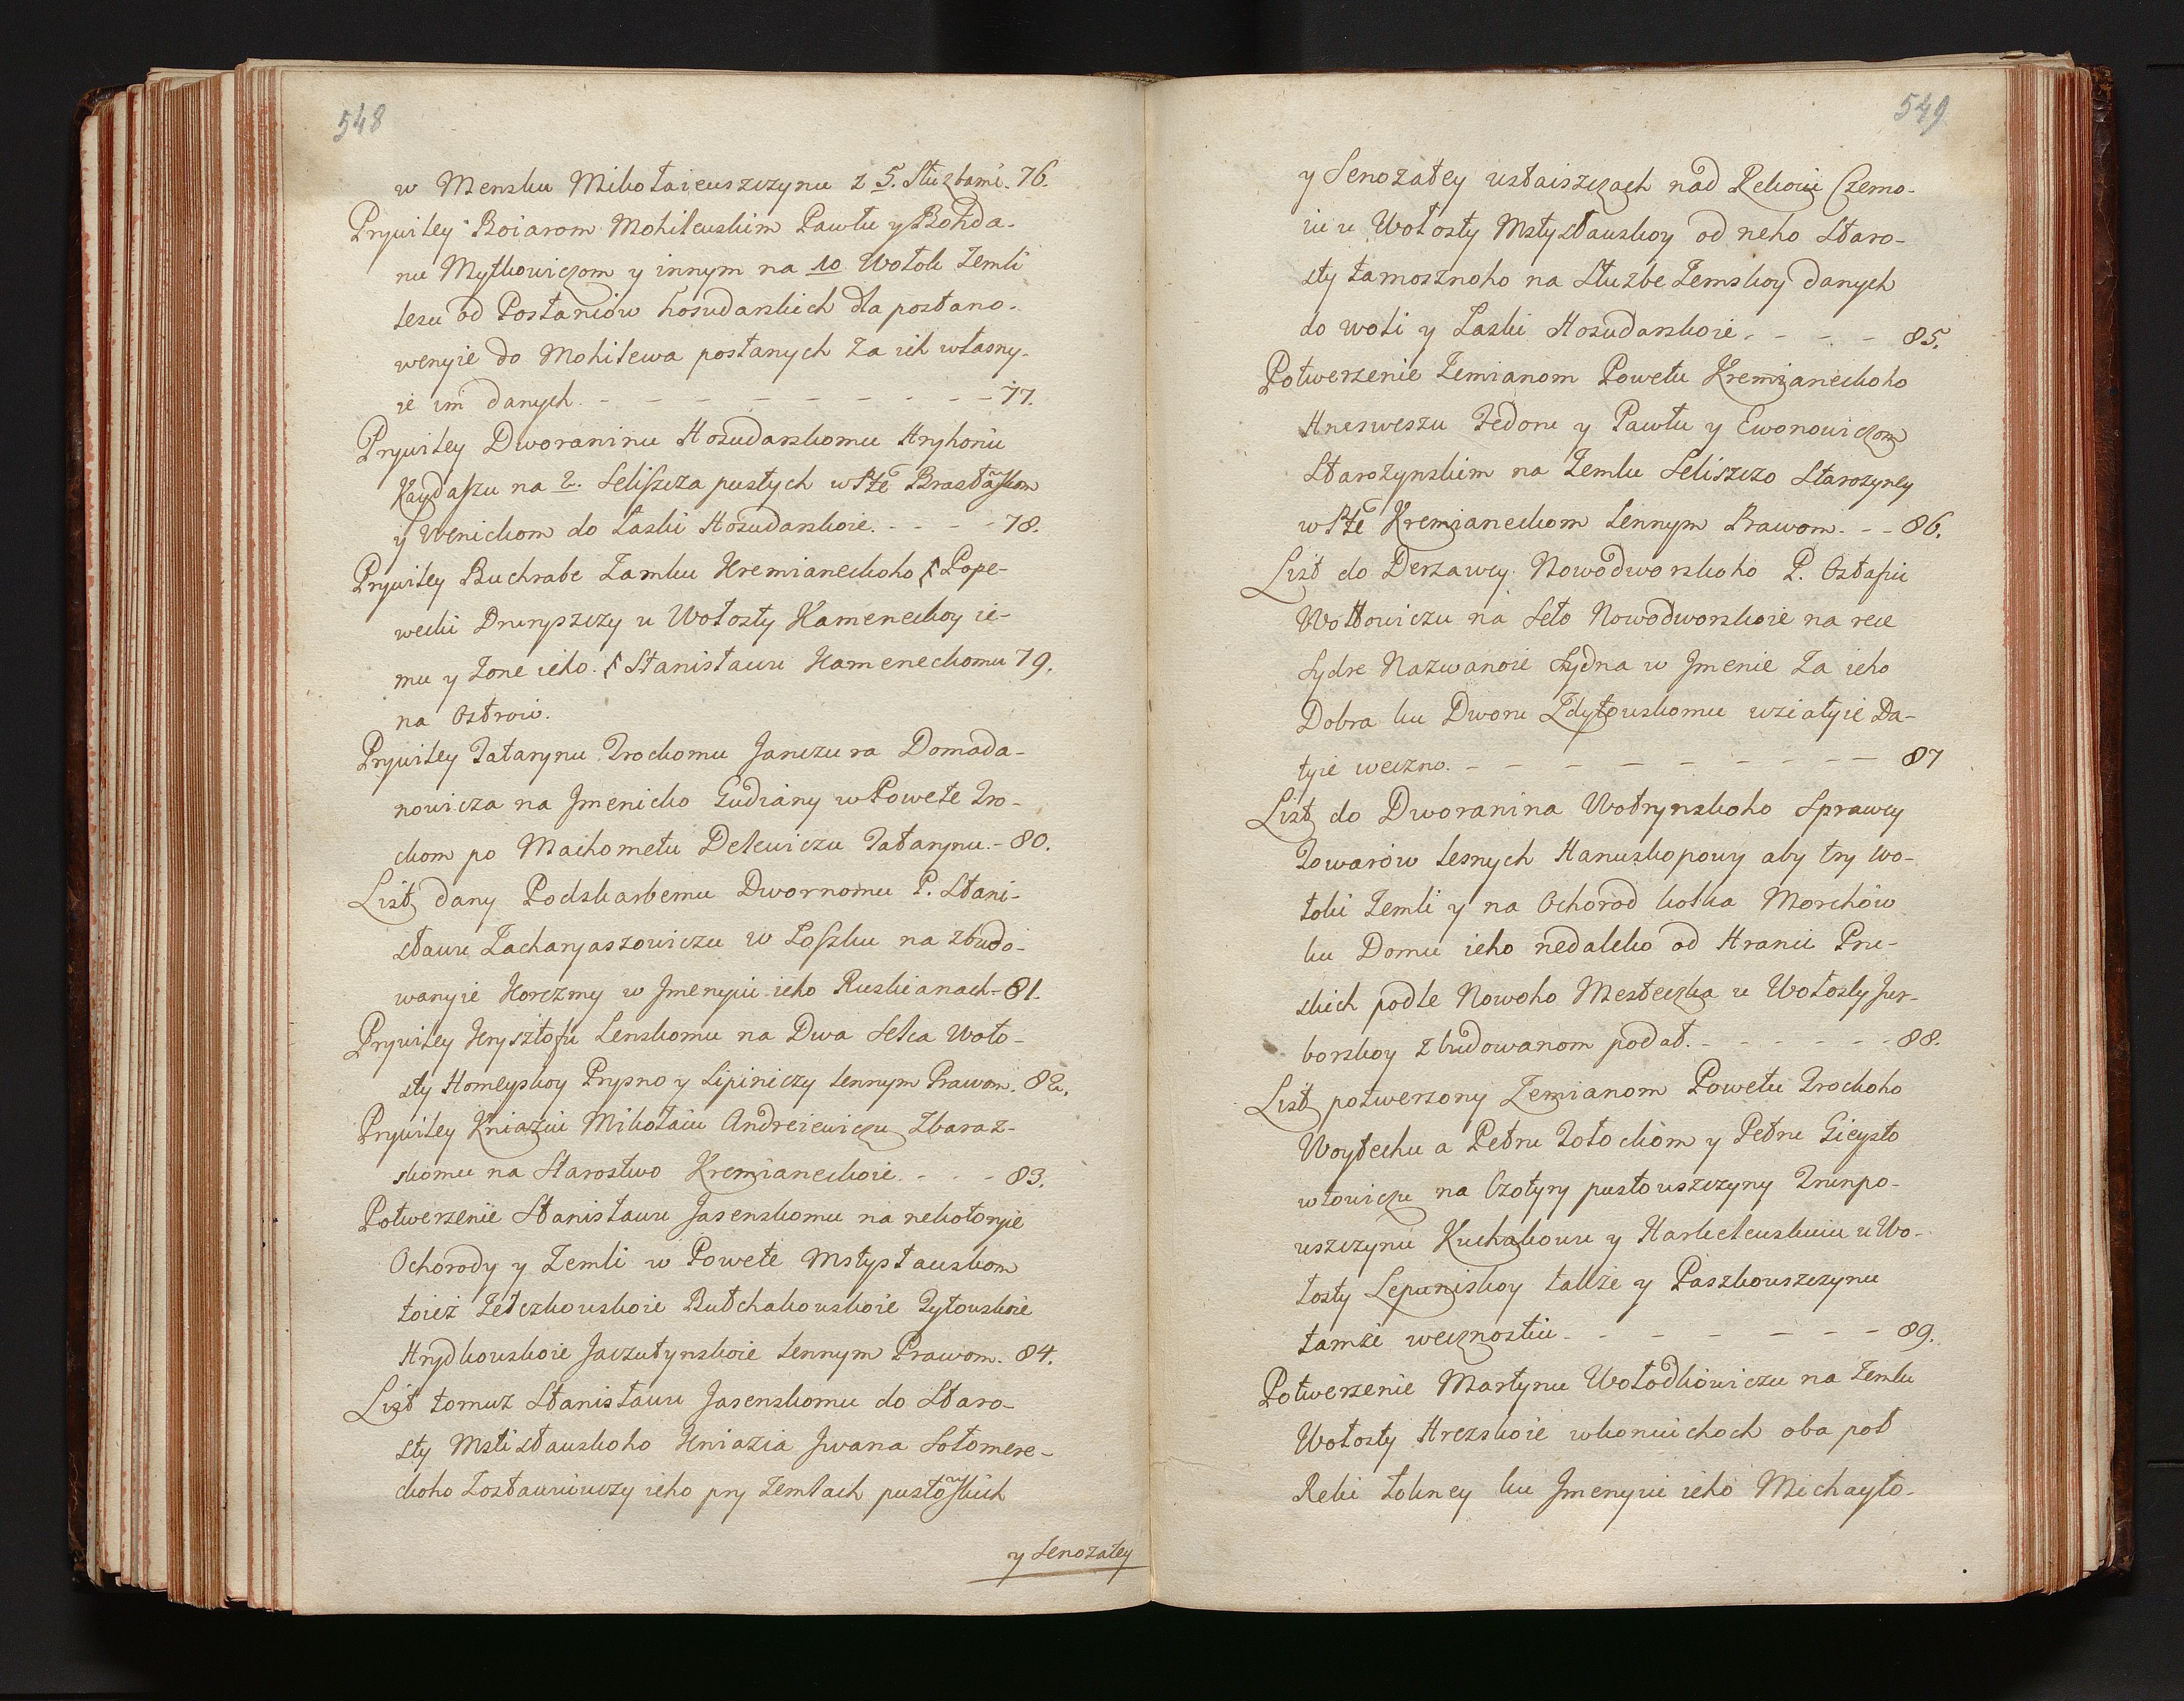 548
w Mensku Mikołaiewszczynu z 5. Służbami. 76.
Prywiley Boiarom Mohilewskim Pawłu y Bohda-
nu Mytkowiczom y innym na 10 Wołok Zemli
lesu od Posłaniow hosudarskich dla postano-
wenyie do Mohilewa posłanych za ich własny-
ie im danych. - - - - - - - - 77.
Prywiley Dworaninu Hosudarskomu Hryhoriu
na 2. Seliszcza pustych w Pte
y Wenickom do Łaski Hosudarskoie. - - - - 78.
Prywiley Buchrabe Zamku Kremianeckoho Pope-
wecki u Wołosty Kameneckoy ie-
mu y Zone ieho. Stanisławu Kameneckomu 79.
na Ostrow.
Prywiley Tatarynu Trockomu Janczura Domada-
nowicza na Jmenicko Gudiany w Powete Tro-
ckom po Machometu Delewiczu Tatarynu. - 80.
List dany Podskarbemu Dwornomu P. Stani-
sławu Zacharyaszowiczu w Łoszku na zbudo-
wanyie Korczmy w Jmenyiu ieho Ruskianach - 81.
Prywiley Krysztofu Lenskomu na Dwa Selca Woło-
sty Homeyskoy Prysno y Lipiniczy lennym Prawom. 82.
Prywiley Kniaziu Mikołaiu Andreiewiczu Zbaraz-
skomu na Starostwo Kremianeckoie. - - - 83.
Potwerzenie Stanisławu Jasenskomu na nekotoryie
Ochorody y Zemli w Powete Mstysławskom
toież Zetczkowskoie Butchakowskoie Tytowskoie
Hrydkowskoie Jaczutynskoie lennym Prawom. 84.
List tomuz Stanisławu Jasenskomu do Staro-
sty Mstisławskoho Kniazia Jwana Sołomere-
ckoho Zostawuiuczy ieho pry Zemlach
y Senozatey
549
y Senozatey nad Rekoiu Czerno-
iu u Wołosty Mstysławskoy od neho Staro-
sty tamosznoho na Służbe Zemskoy danych
do woli y Łaski Hosudarskoie. - - - - 85.
Potwerzenie Zemianom Powetu Kremianeckoho
Fedoru y Pawłu y Ewonowiczom
Starozynskim na Zemlu Seliszczo Starozyney
w Pte Kremianeckom lennym Prawom. - - 86.
List do Derzawcy Nowodworskoho P. Ostafiu
Wołłowiczu na Seło Nowodworskoie na rece
Sydre Nazwanoie Sydna w Jmenie Za ieho
Dobra ku Dworu Zdytowskomu wziatyie Da-
tyie weczno. - - - - - - - - 87
List do Dworanina Wołrynskoho Sprawcy
Towarow lesnych aby try Wo-
łoki Zemli y na Ochorod kolka Morchow
ku Domu ieho nedaleko od Hranic Pru-
skich podle Nowoho Mesteczka u Wołosty Jur-
borskoy zbudowanom podał. - - - - - - 88.
List potwerzony Zemianom Powetu Trockoho
Woytechu a Petru Zołockom y Petru Gieysto
wtowiczu na Czotyry pustowszczyny Trunpo-
uszczynu Kuchakowu y u Wo-
łosty Lepuniskoy także y Paszkowszczynu
tamże wecznostiu. - - - - - - - 89.
Potwerzenie Martynu Wołodkowiczu na Zemlu
Wołosty Hrezskoie oba poł
Reki ku Jmenyiu ieho Michayło-